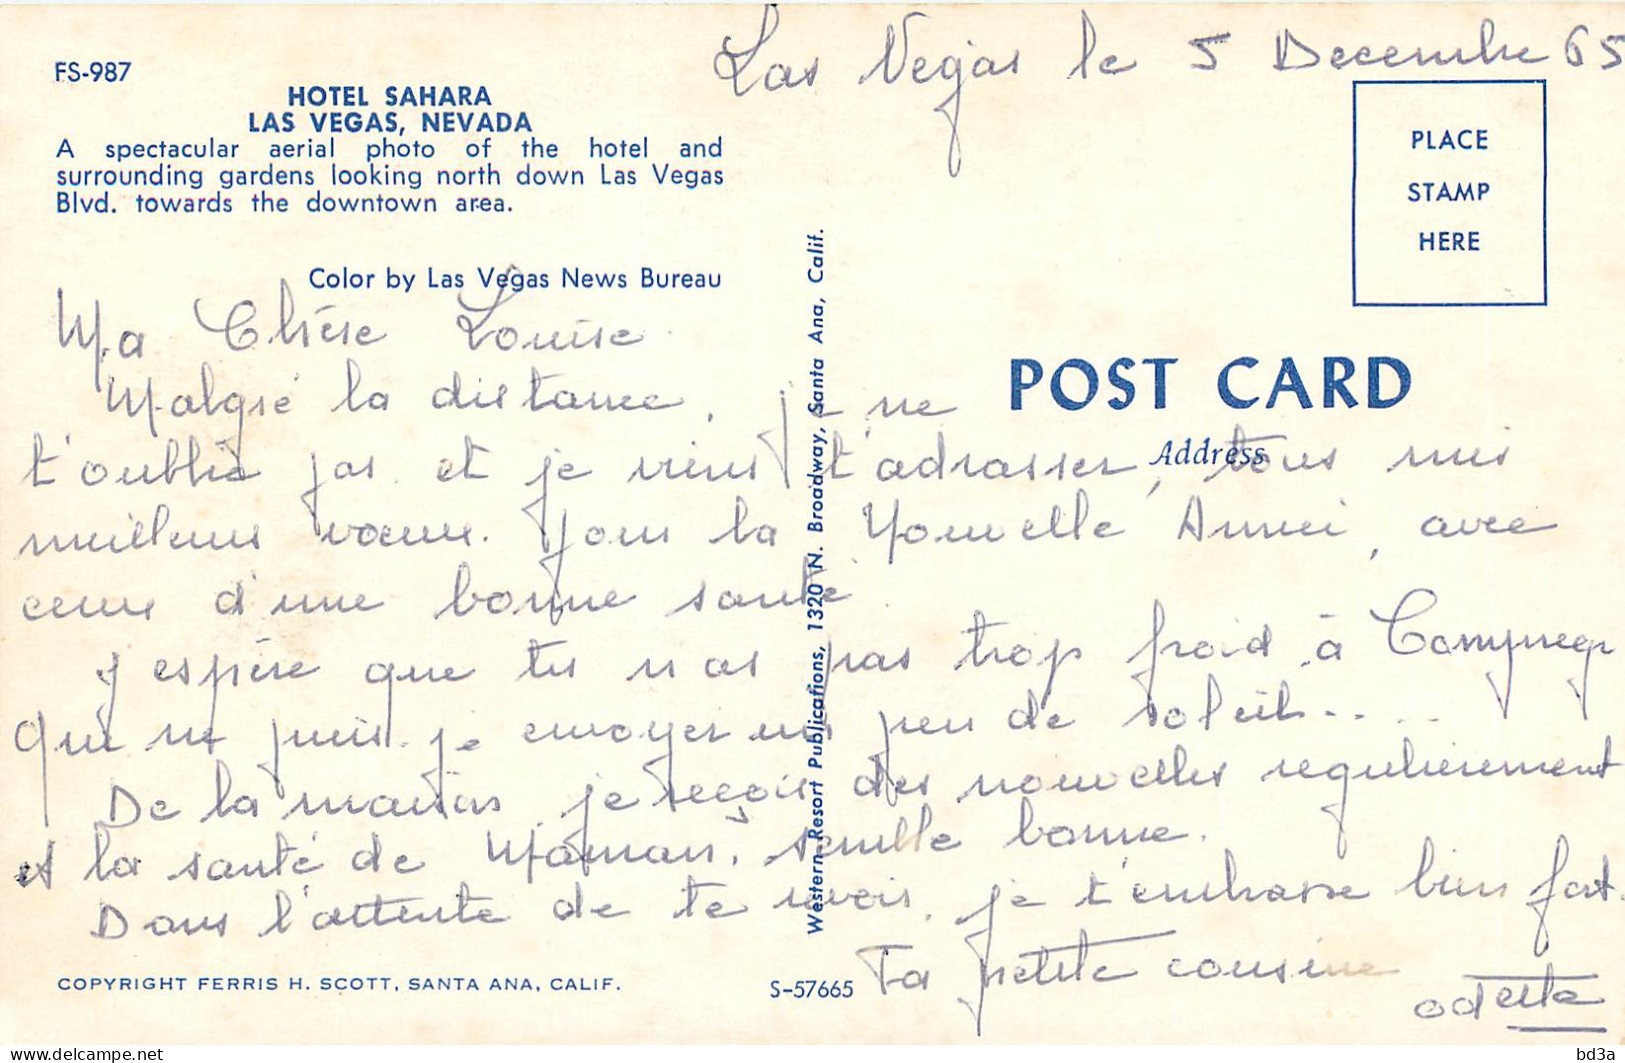 Las Vegas le 5 Decembre 65
FS-987
HOTEL SAHARA
LAS VEGAS, NEVADA
A spectacular aerial photo of the hotel and
surrounding gardens looking north down Las Vegas
Blvd. towards the downtown area.
Color by Las Vegas News Bureau
PLACE
STAMP
HERE
POST CARD
Address
Western Resort Publications, 1320 N. Broadway, Santa Ana, Calif.
Ma Chère Louise
Malgré la distance, je ne
t'oublie pas et je viens t'adresser, tous mes
meilleurs voeux pour la Nouvelle Année, avec
ceux d'une bonne santé
J'espère que tu n'as pas trop froid à
Que ne puis-je envoyer un peu de soleil....
De la maison, je reçois des nouvelles regulierement
et la santé de Maman, semble bonne.
Dans l'attente de te revoir, je t'embrasse bien fort.
Ta petite cousine
Odette
COPYRIGHT FERRIS H. SCOTT, SANTA ANA, CALIF.
S-57665
delcampe.net
bd3a